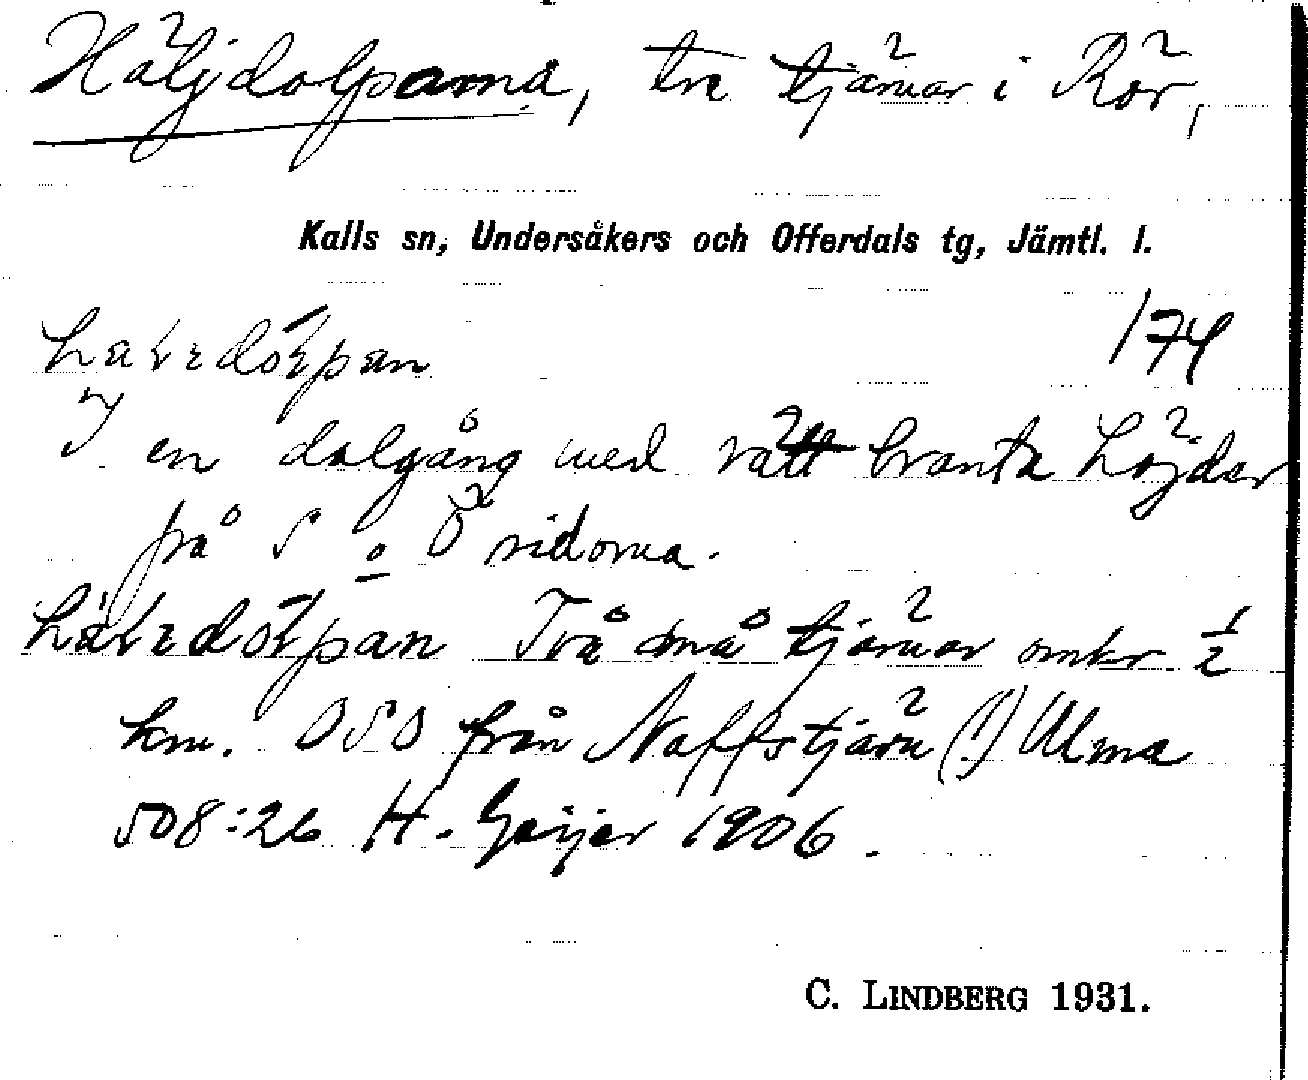 Häljdolparna, tre tjärnar i Rör,
Kalls sn, Undersåkers och Offerdals tg, Jämtl. l.
174
I en dalgång med rätt branta höjder
på S o Ö sidorna.
Två små tjärnar omkr ½
km. OSO från Naffstjärn (!) Ulma
508:26 H. Geijer 1906.
C. LINDBERG 1931.